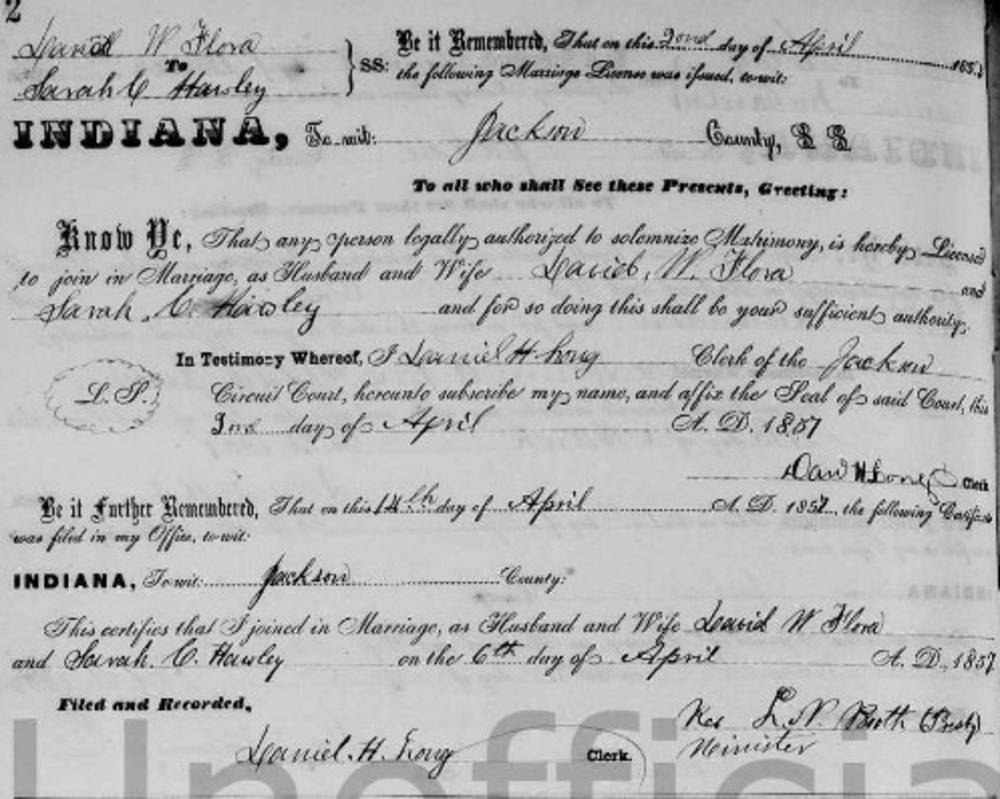 2
David W Flora
To
Sarah C Hawley
SS:
Be it Remembered, That on this 2ond day of April 185
the following Marriage License was issued, to wit:
INDIANA, To wit: Jackson County, S S
To all who shall See these Presents, Greeting:
Know Ye, That any person legally authorized to solemnize Matrimony, is hereby Licensed
to join in Marriage, as Husband and Wife David W. Flora and
Sarah C. Hawley and for so doing this shall be your sufficient authority.
In Testimony Whereof, I Daniel H Long Clerk of the Jackson
L. S. Circuit Court, hereunto subscribe my name, and affix the Seal of said Court, this
2ond day of April A. D. 1857
Danl H Long Clerk
Be it Further Remembered, That on this 14th day of April A. D. 1857, the following Certificate
was filed in my Office, to wit:
INDIANA, To wit: Jackson County:
This certifies that I joined in Marriage, as Husband and Wife David W Flora
and Sarah. C. Hawley on the 6th day of April A. D. 1857
Filed and Recorded,
Daniel. H. Long Clerk.
Rev L. N.
Minister
Unofficia